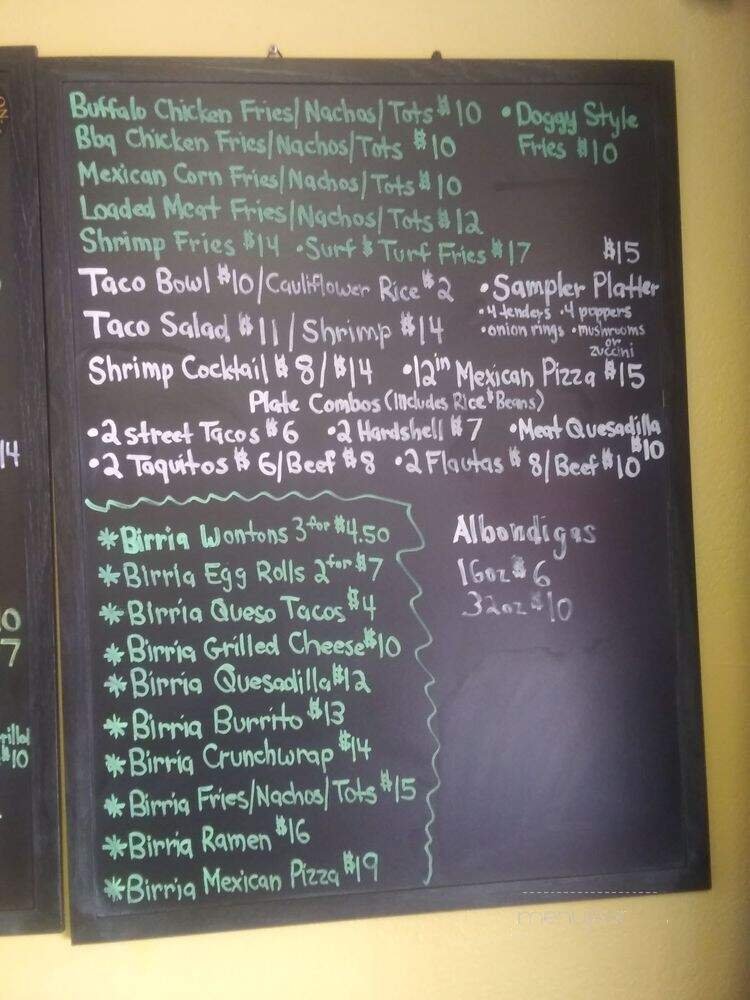 Buffalo Chicken Fries/Nachos/Tots $10
• Doggy Style
Fries $10
Bbq Chicken Fries/Nachos/Tots $10
Mexican Corn Fries/Nachos/Tots $10
Loaded Meat Fries/Nachos/Tots $12
Shrimp Fries $14 • Surf & Turf Fries $17
Taco Bowl $10/Cauliflower Rice $2
$15
• Sampler Platter
• 4 tenders • 4 poppers
• onion rings • mushrooms
or
zuccini
Taco Salad $11/Shrimp $14
Shrimp Cocktail $8/$14 • 12in Mexican Pizza $15
Plate Combos (Includes Rice & Beans)
• 2 street Tacos $6 • 2 Hardshell $7 • Meat Quesadilla $10
• 2 Taquitos $6/Beef $8 • 2 Flautas $8/Beef $10
* Birria Wontons 3 for $4.50
* Birria Egg Rolls 2 for $7
* Birria Queso Tacos $4
* Birria Grilled Cheese $10
* Birria Quesadilla $12
* Birria Burrito $13
* Birria Crunchwrap $14
* Birria Fries/Nachos/Tots $15
* Birria Ramen $16
* Birria Mexican Pizza $19
Albondigas
16oz $6
32oz $10
14
7
$10